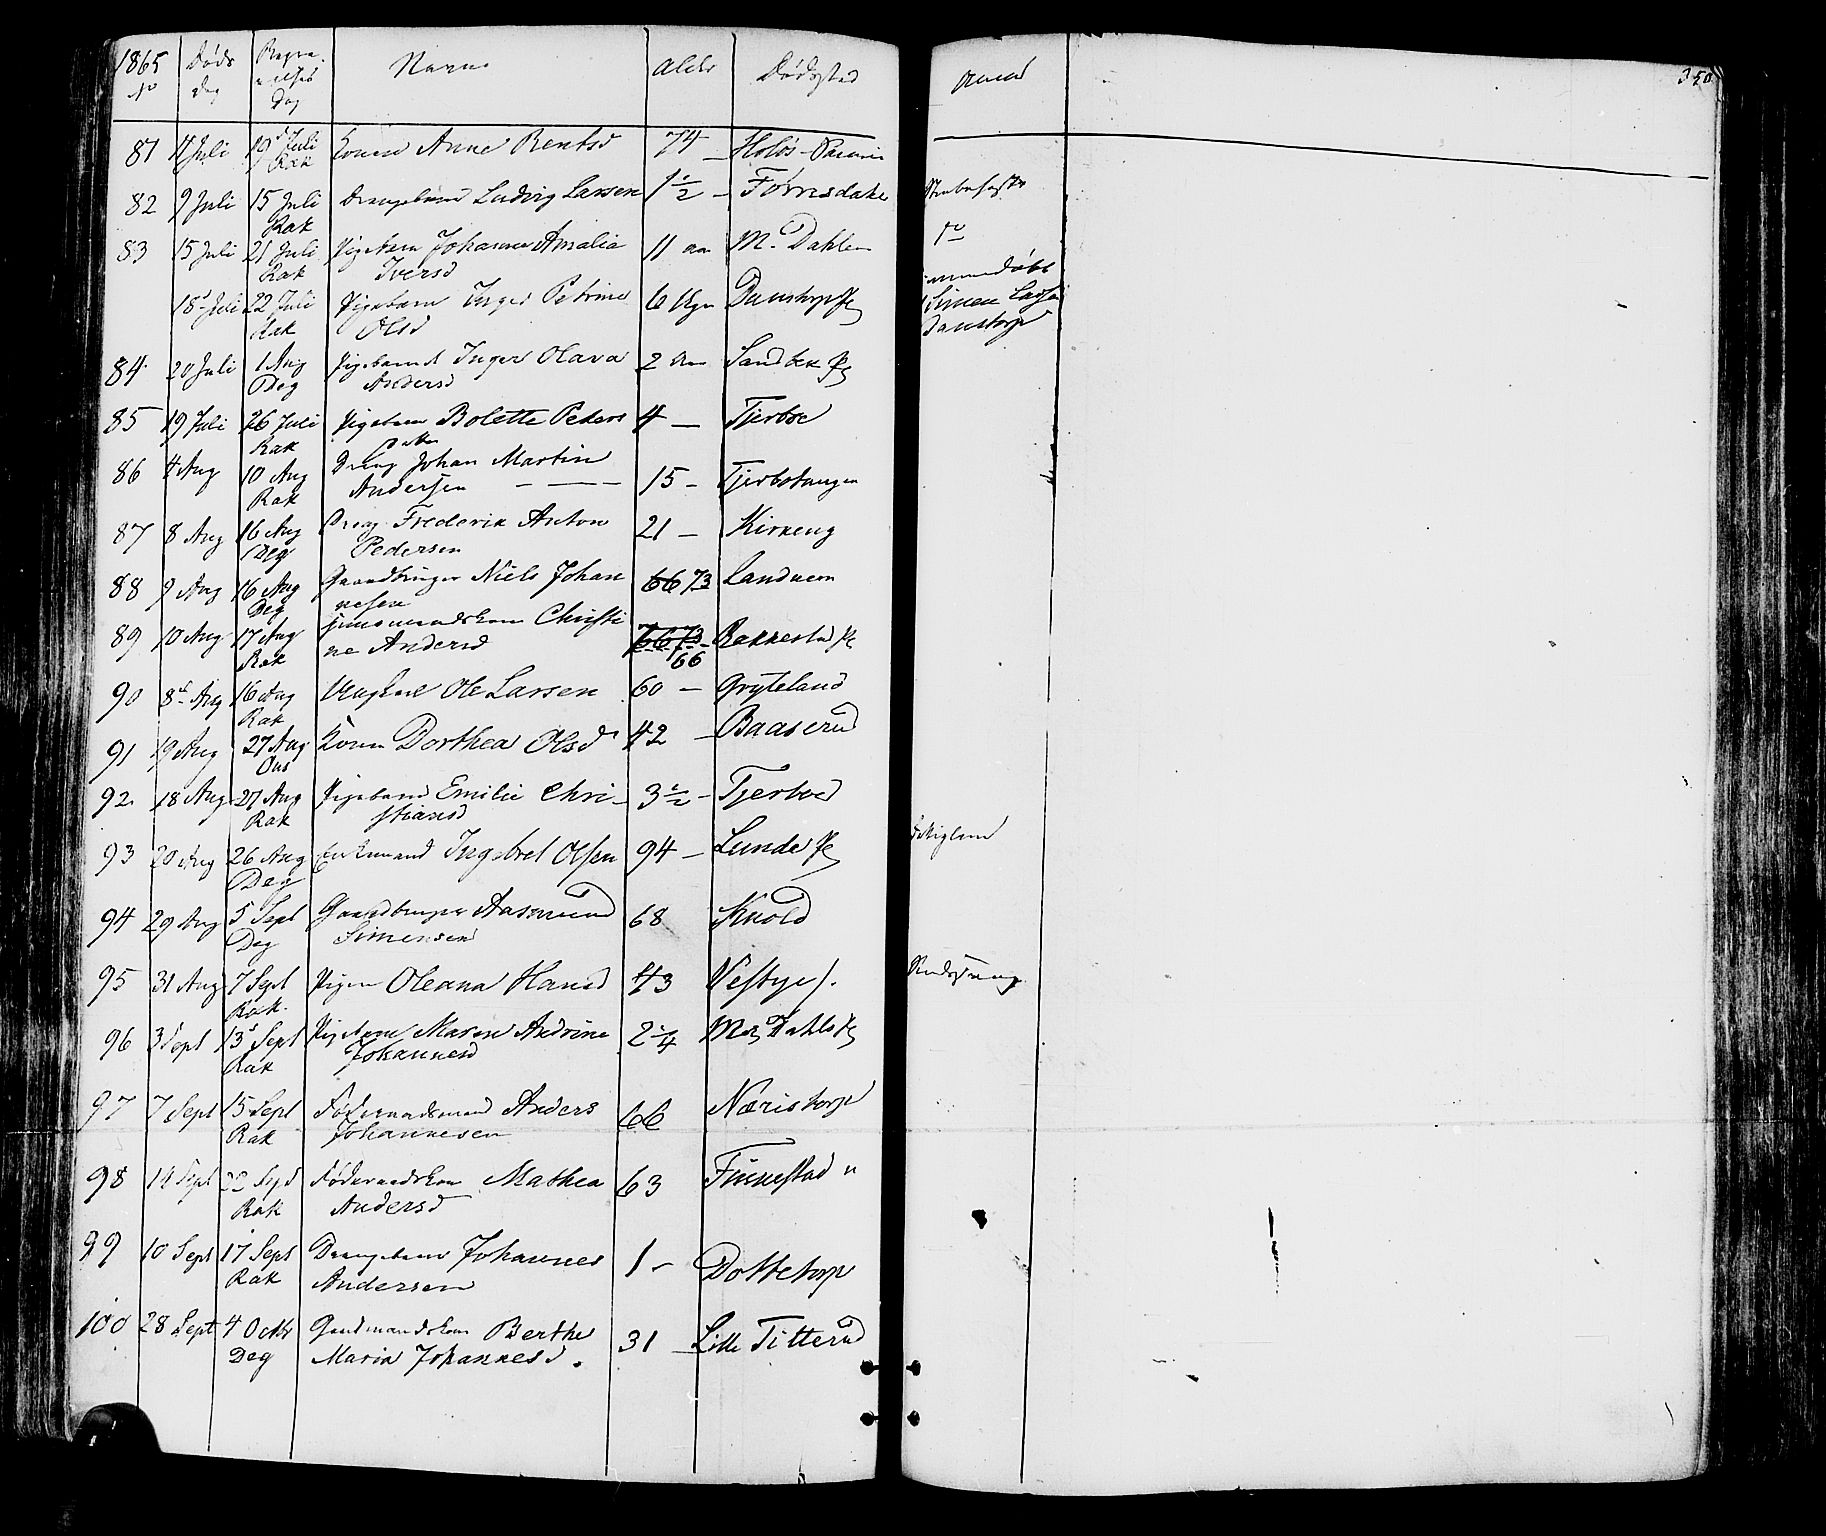 1865 Døds Begra- Navn Alder Dødssted Anm 350
No Dag velses
Dag
81 4 Juli 19d Juli Konen Anne Bentsd 74 – Holøs –
Rak
82 9 Juli 15 Juli Drengebarn Ludvig Larsen 1 1/2 – Førrisdalen
Rak
83 15 Juli 21 Juli Pigebarn Johanne Amalia 11 aar M. Dahlen do
Rak Iversd
18d Juli 22 Juli Pigebarn Inger Petrine 6 Uger Danstorp Eje
Rak Olsd
Simen
Danstorp
84 20 Juli 1 Aug Pigebarnet Inger Olava 2 Aar Sandbæk Eje
Deg Andersd
85 19 Juli 26 Juli Pigebarn Bolette Peders 4 – Tjerbøe
Rak Datter
86 4 Aug 10 Aug Dreng Johan Martin 15 – Tjerbøtangen
Rak Andersen
87 8 Aug 16 Aug Dreng Frederik Anton 21 – Kirkeng
Deg Pedersen
88 9 Aug 16 Aug Gaardbruger Niels Johan 66 73 Landvern
Deg nesen
89 10 Aug 17 Aug Husmandskone Christi 66 73 – Rakkestad Eje
Rak ne Andersd 66
90 8d Aug 16 Aug Ungkarl Ole Larsen 60 – Gryteland
Rak
91 19 Aug 27 Aug Konen Dorthea Olsd 42 – Baaserud
Ons
92 18 Aug 27 Aug Pigebarn Emilie Chri- 3 1/2 – Tjerbøe
Rak stiansd
93 20 Aug 26 Aug Enkemand Ingebret Olsen 94 – Lunde Eje Fattiglem
Deg
94 29 Aug 5 Sept Gaardbruger Aasmund 68 Knold
Deg Simensen
95 31 Aug 7 Sept Pigen Oleana Hansd 43
Rak.
96 3 Sept 13d Sept Pigebarn Maren Andrine 2 1/4
Rak Johannesd
97 7 Sept 15 Sept Føderaadsmand Anders 66 Næristorp
Rak Johannesen
98 14 Sept 22 Sept Føderaadskone Mathea 63 Finnestad
Rak Andersd
99 10 Sept 17 Sept Drengebarn Johannes 1 – Dottetorp
Rak Andersen
100 28 Sept 4 Octbr Gaardmandskone Berthe 31 – Lille Titterud
Deg Maria Johannesd.